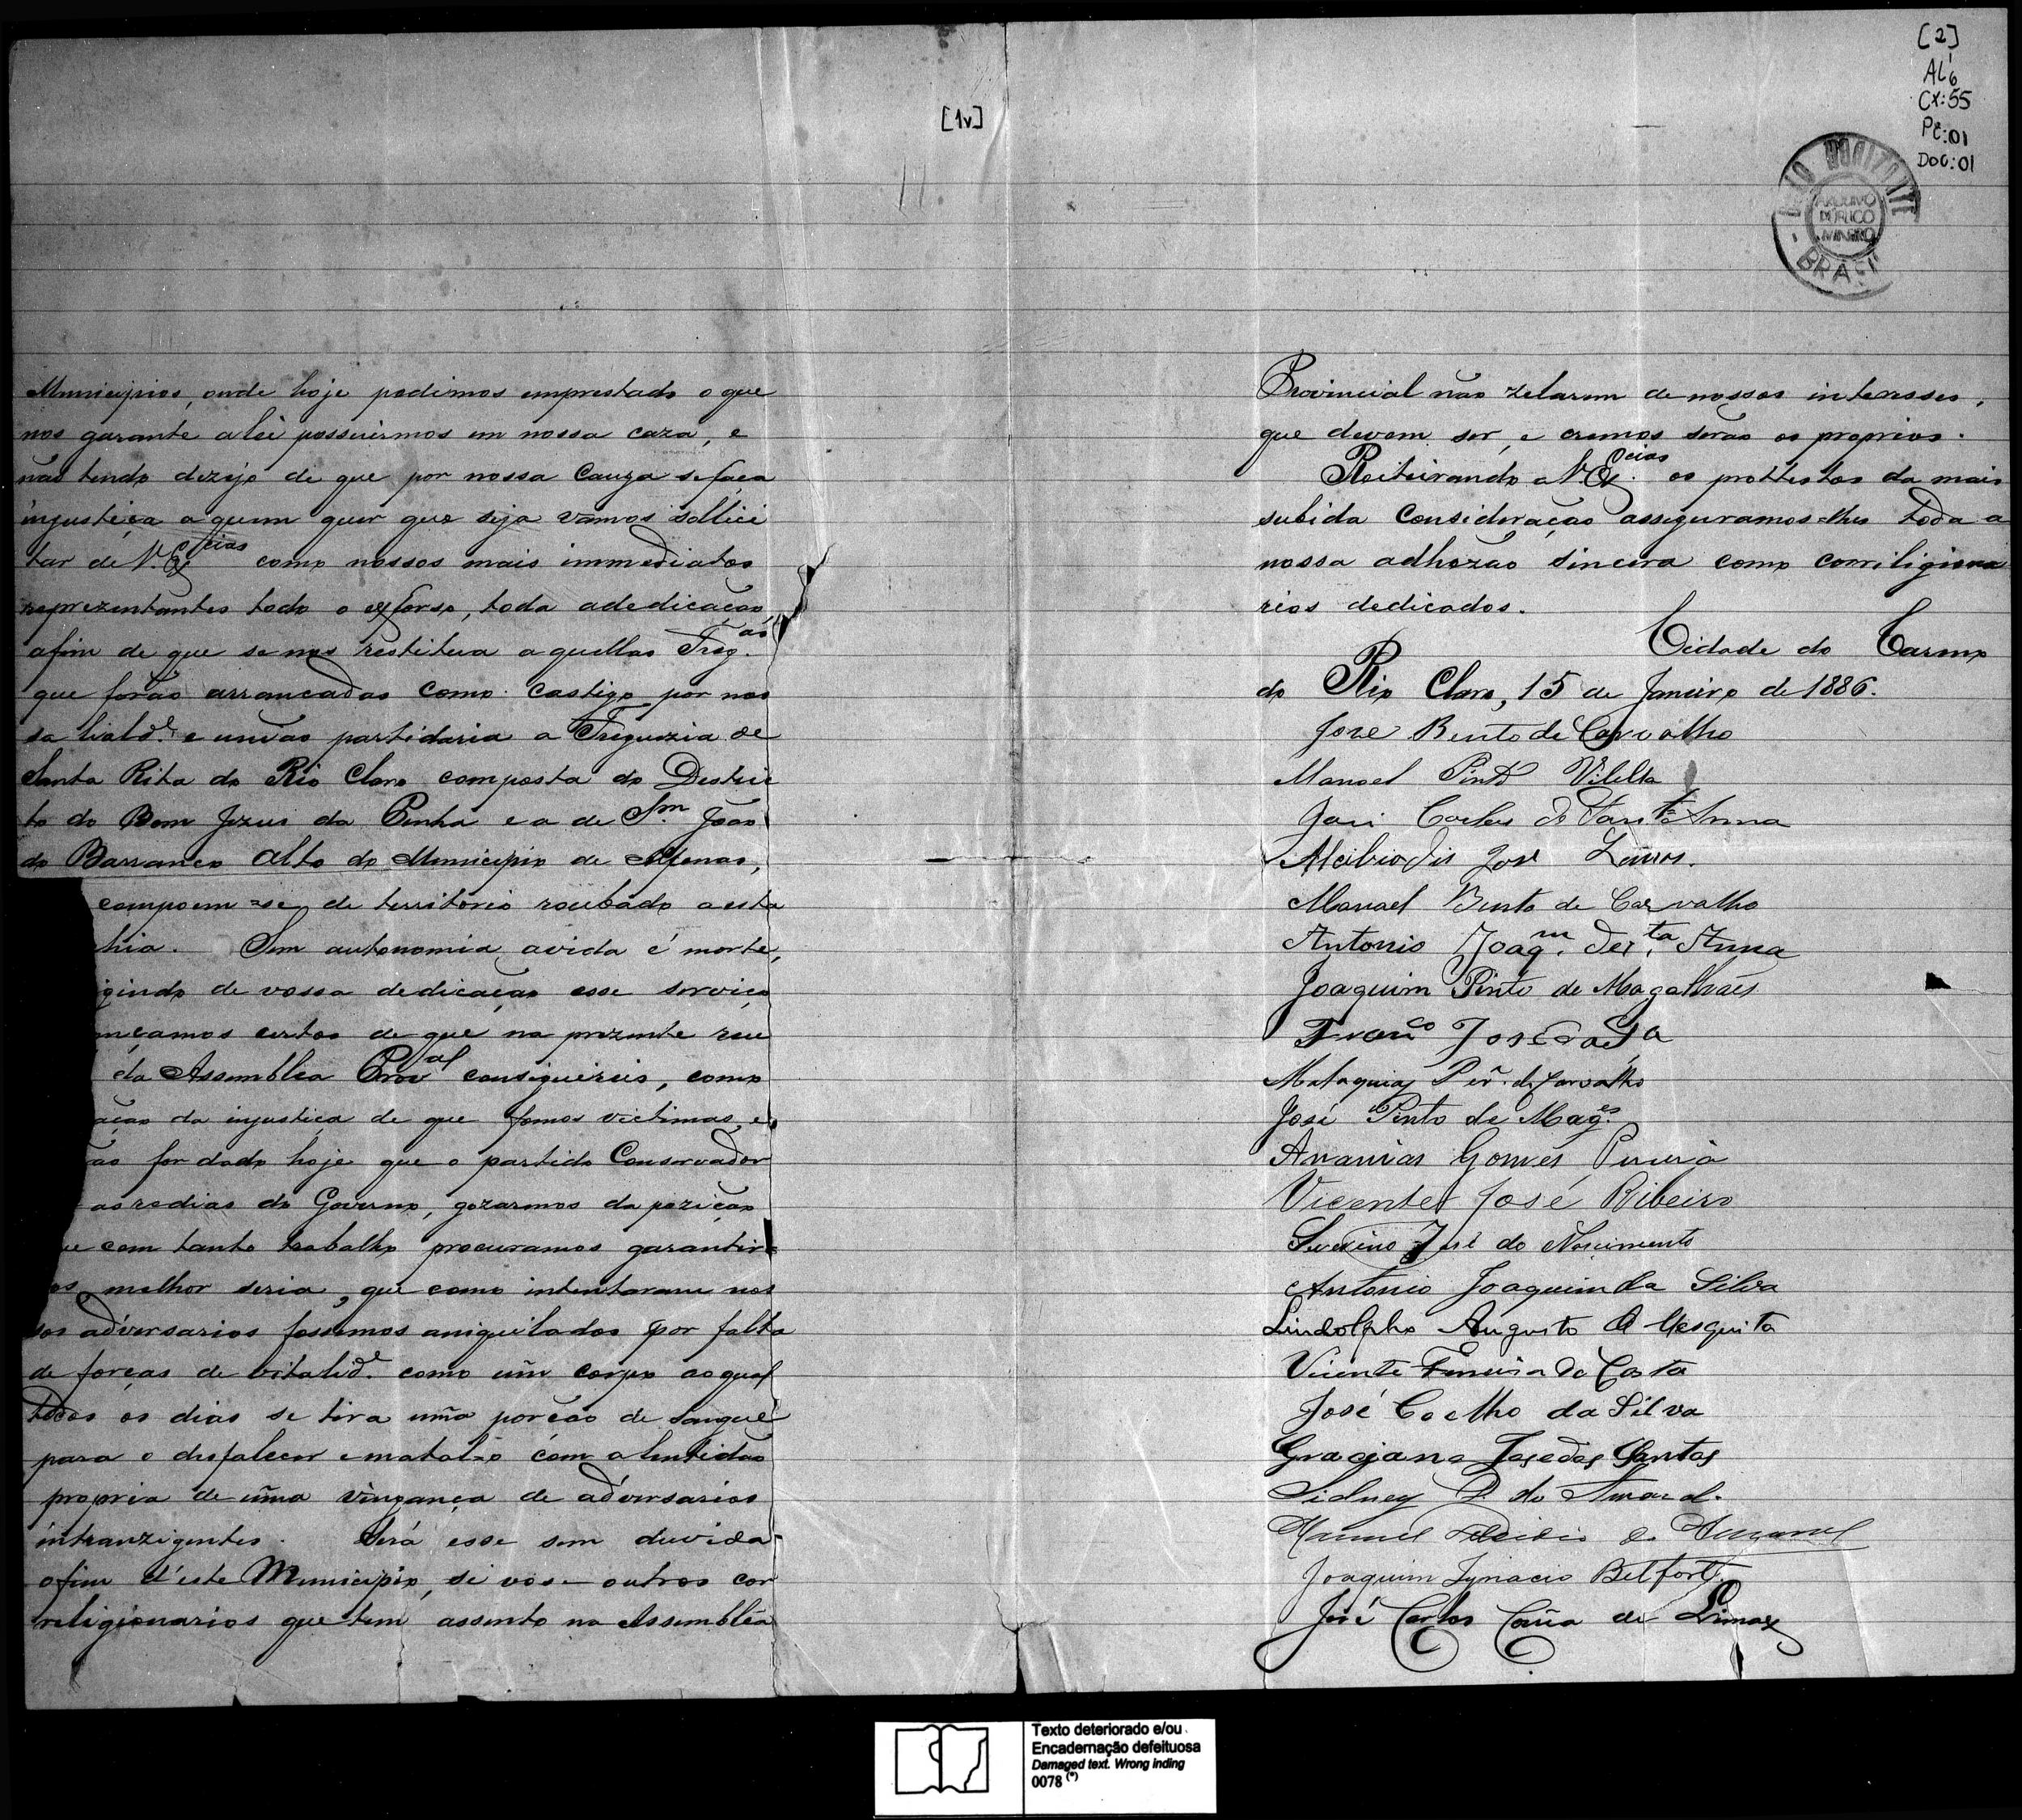 [1v]
Municipios, onde hoje pedimos emprestado o que
nos garante a lei possuirmos em nossa caza, e
não tendo dezejo de que por nossa Cauza se faça
injustiça a quem quer que seja vamos sollici
tar de V. Ex.cias como nossos mais immediatos
reprezentantes todo o exforso, toda a dedicação
afim de que se nos restitua aquellas Freg.as
que forão arrancadas como castigo por nos
sa liald.e e união partidaria a Freguezia de
Santa Rita do Rio Claro composta do Destric
to do Bom Jezus da Penha e a de S.m João
do Barranco Alto do Municipio de Alfenas,
compoem-se de territorio roubado a esta
hia. Sem autonomia a vida é morte,
igindo de vossa dedicação esse serviço
nçamos certos de que na prezente reu
da Assemblea Prov.al consiguireis, como
ação da injustiça de que fomos victimas, e
ão for dado hoje que o partido Conservador
as redias do Governo, gozarmos da pozição
ue com tanto trabalho procuramos garantir-
os melhor seria, que como intentaram nos
sos adversarios fossemos aniquilados por falta
de forças de vitalid.e como um corpo ao qual
todos os dias se tira uma porção de sangue
para o desfalecer e matal-o com a lentidão
propria de uma vingança de adversarios
intranzigentes. Será esse sem duvida
o fim d'este Municipio, si vós-outros cor
religionarios que tem assento na Assemblea
[2]
AL6
CX:55
PC:01
DOC:01
BELO HORIZONTE
ARQUIVO
PUBLICO
MINEIRO
BRASIL
Provincial não zelarem de nossos interesses,
que devem ser, e cremos serão os proprios.
Reiteirando a V. Ex.cias os prottestos da mais
subida Consideração asseguramos-lhes toda a
nossa adhezão sincera como correligiona
rios dedicados.
Cidade do Carmo
do Rio Claro, 15 de Janeiro de 1886.
Jose Bento de Carvalho
Manoel Pinto Vilella
Carlos de Sant'Anna
Alcibiades José Lemos.
Manoel Bento de Carvalho
Antonio Joaq.m de S.ta Anna
Joaquim Pinto de Magalhães
Fran.co José
Malaquias Per.a de Carvalho
José Pinto de Mag.es
Ananias Gomes Pereira
Vicente José Ribeiro
Severino José do Nascimento
Antonio Joaquim da Silva
Lindolpho Augusto Mesquita
Vicente Ferreira da Costa
José Coelho da Silva
Graciano Jose dos Santos
Sidney D. do Amaral.
Manuel do Amaral
Joaquim Ignacio Belfort.
José Carlos de Lima
Texto deteriorado e/ou
Encadernação defeituosa
Damaged text. Wrong inding
0078 (*)